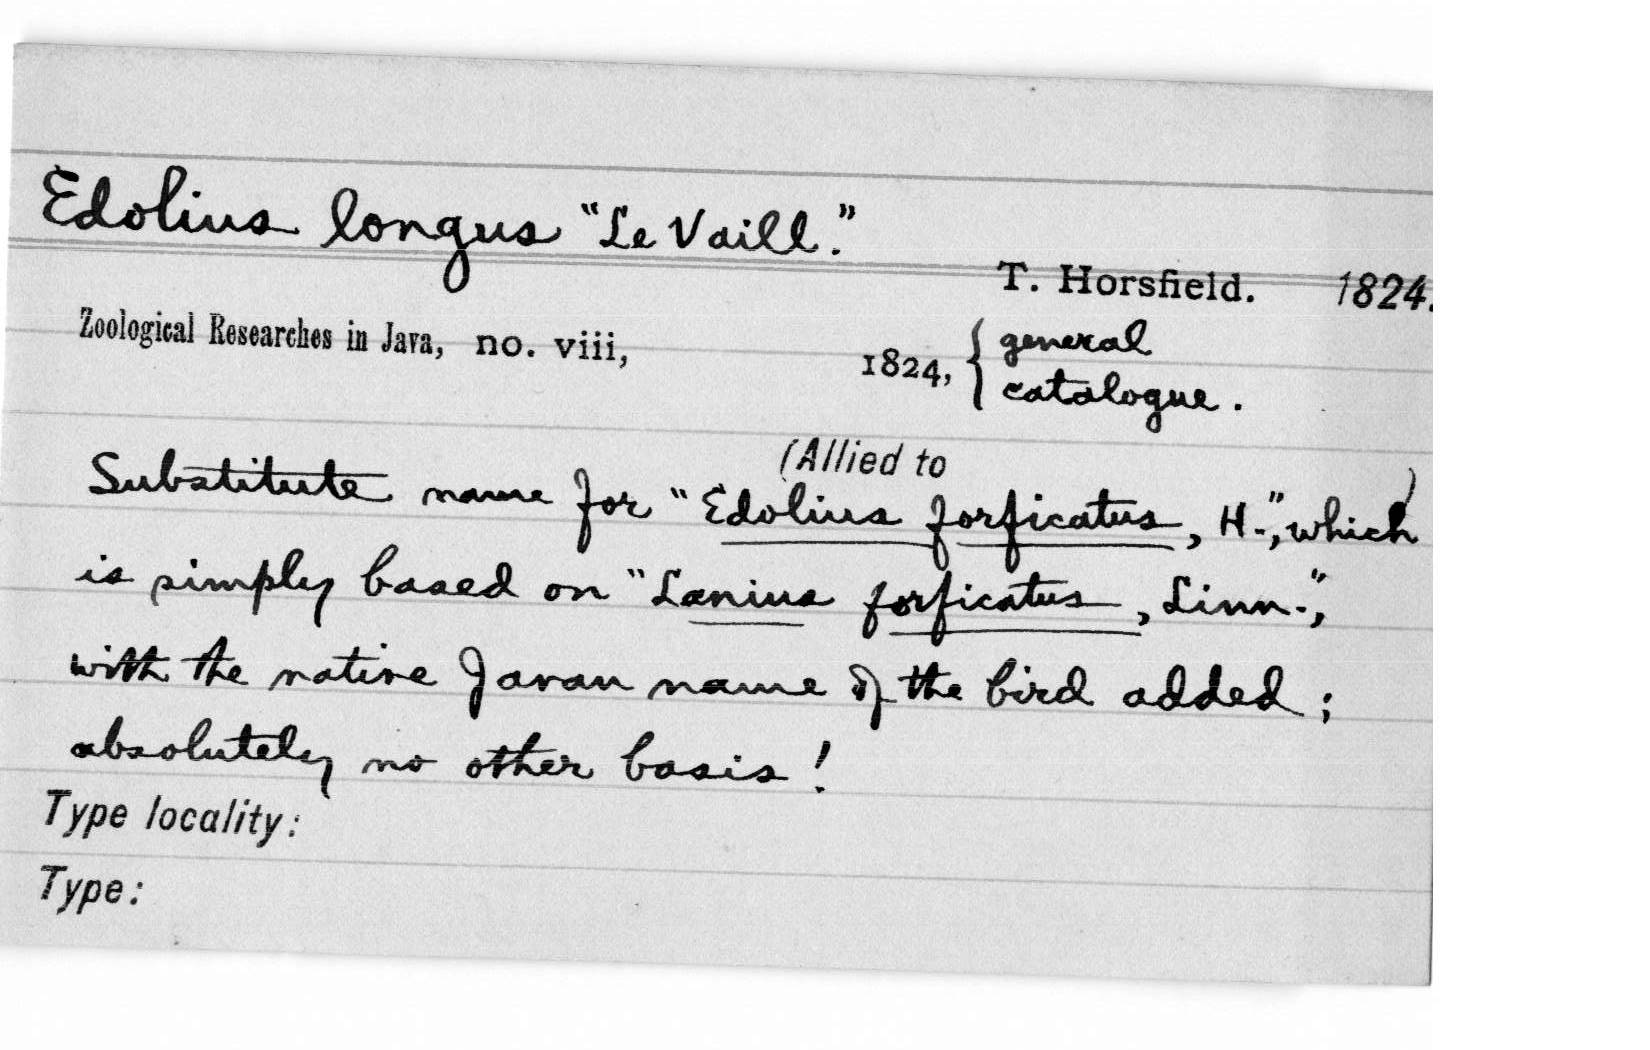 Edolius longus "Le Vaill."
T. Horsfield. 1824.
Zoological Researches in Java, no. viii, 1824, { general
catalogue.
(Allied to )
Substitute name for "Edolius forficatus, H-", which
is simply based on "Lanius forficatus, Linn-",
with the native Javan name of the bird added;
absolutely no other basis!
Type locality:
Type: